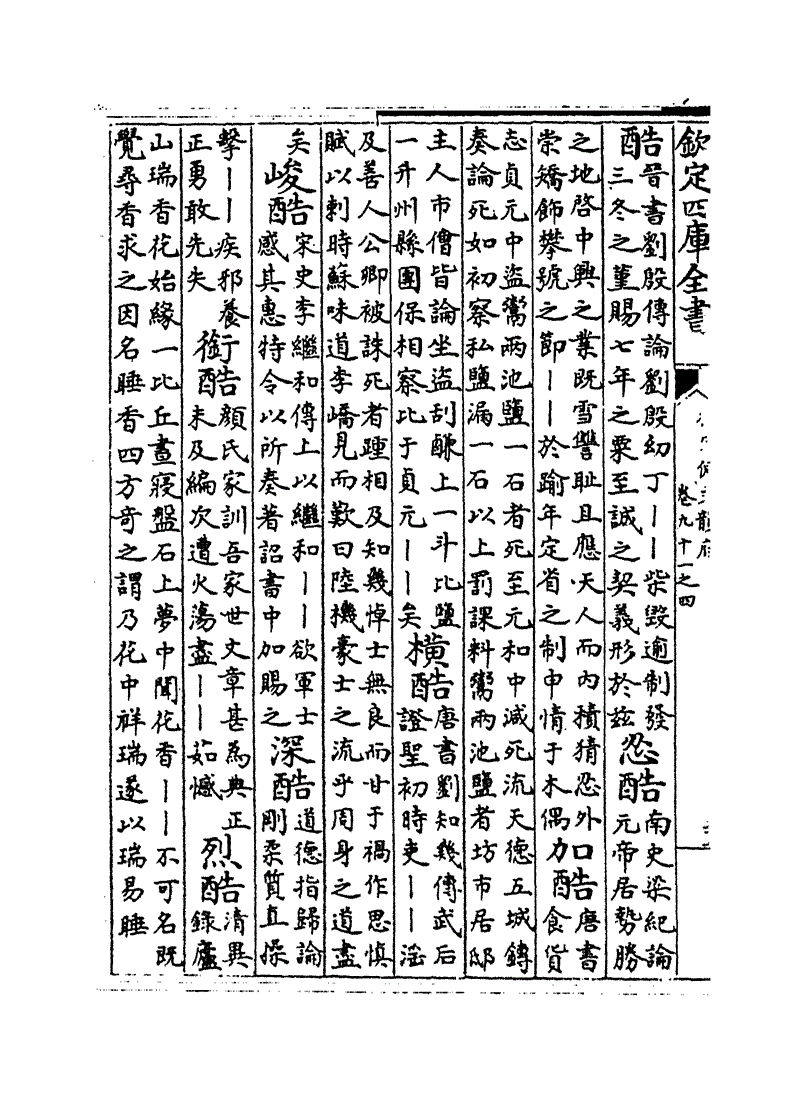 欽定四庫全書
卷九十一之四
酷
晉書劉殷傳論劉殷幼丁丨丨柴毀逾制發
三冬之菫賜七年之粟至誠之契義形於兹
忍酷
南史梁紀論
元帝居勢勝
之地啓中興之業既雪讐耻且應天人而内積猜忍外
崇矯飾攀號之節丨丨於踰年定省之制申情于木偶
加酷
唐書
食貨
志貞元中盜鬻兩池鹽一石者死至元和中減死流天德五城鎛
奏論死如初察私鹽漏一石以上罰課料鬻兩池鹽者坊市居邸
主人市儈皆論坐盜刮鹻上一斗比鹽
一升州縣團保相察比于貞元丨丨矣
横酷
唐書劉知幾傳武后
證聖初時吏丨丨淫
及善人公卿被誅死者踵相及知幾悼士無良而甘于禍作思慎
賦以刺時蘇味道李嶠見而歎曰陸機豪士之流乎周身之道盡
矣
峻酷
宋史李繼和傳上以繼和丨丨欲軍士
感其惠特令以所奏著詔書中加賜之
深酷
道德指歸論
剛柔質直操
擊丨丨疾邪養
正勇敢先失
銜酷
顔氏家訓吾家世文章甚為典正
未及編次遭火蕩盡丨丨茹憾
烈酷
清異
録廬
山瑞香花始緣一比丘晝寢盤石上夢中聞花香丨丨不可名既
覺尋香求之因名睡香四方奇之謂乃花中祥瑞遂以瑞易睡